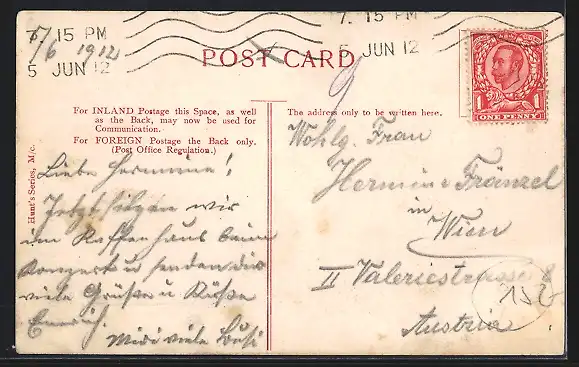 7. 15 PM
5 JUN 12
5/6 1912
7. 15 PM
5 JUN 12
POST CARD
ONE PENNY
For INLAND Postage this Space, as well
as the Back, may now be used for
Communication.
For FOREIGN Postage the Back only.
(Post Office Regulation.)
Hunt's Series, M/c.
Liebe Hermine!
Jetzt sitzen wir
im Kaffeehaus beim
Konzert u senden dir
viele Grüße u Küße
Emerich.
Mizi viele Bussi
The address only to be written here.
Wohlg. Frau
Hermine Fränzel
in
Wien
II Valeriestrasse 8
Austria